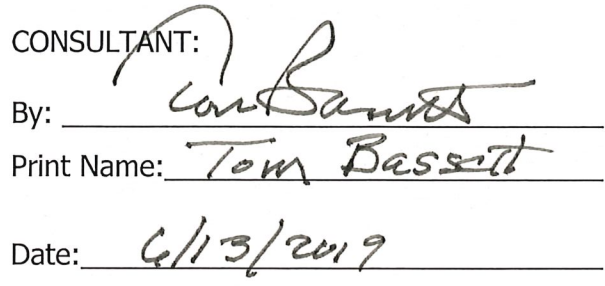 CONSULTANT:
By: Tom Bassett
Print Name: Tom Bassett
Date: 6/13/2019